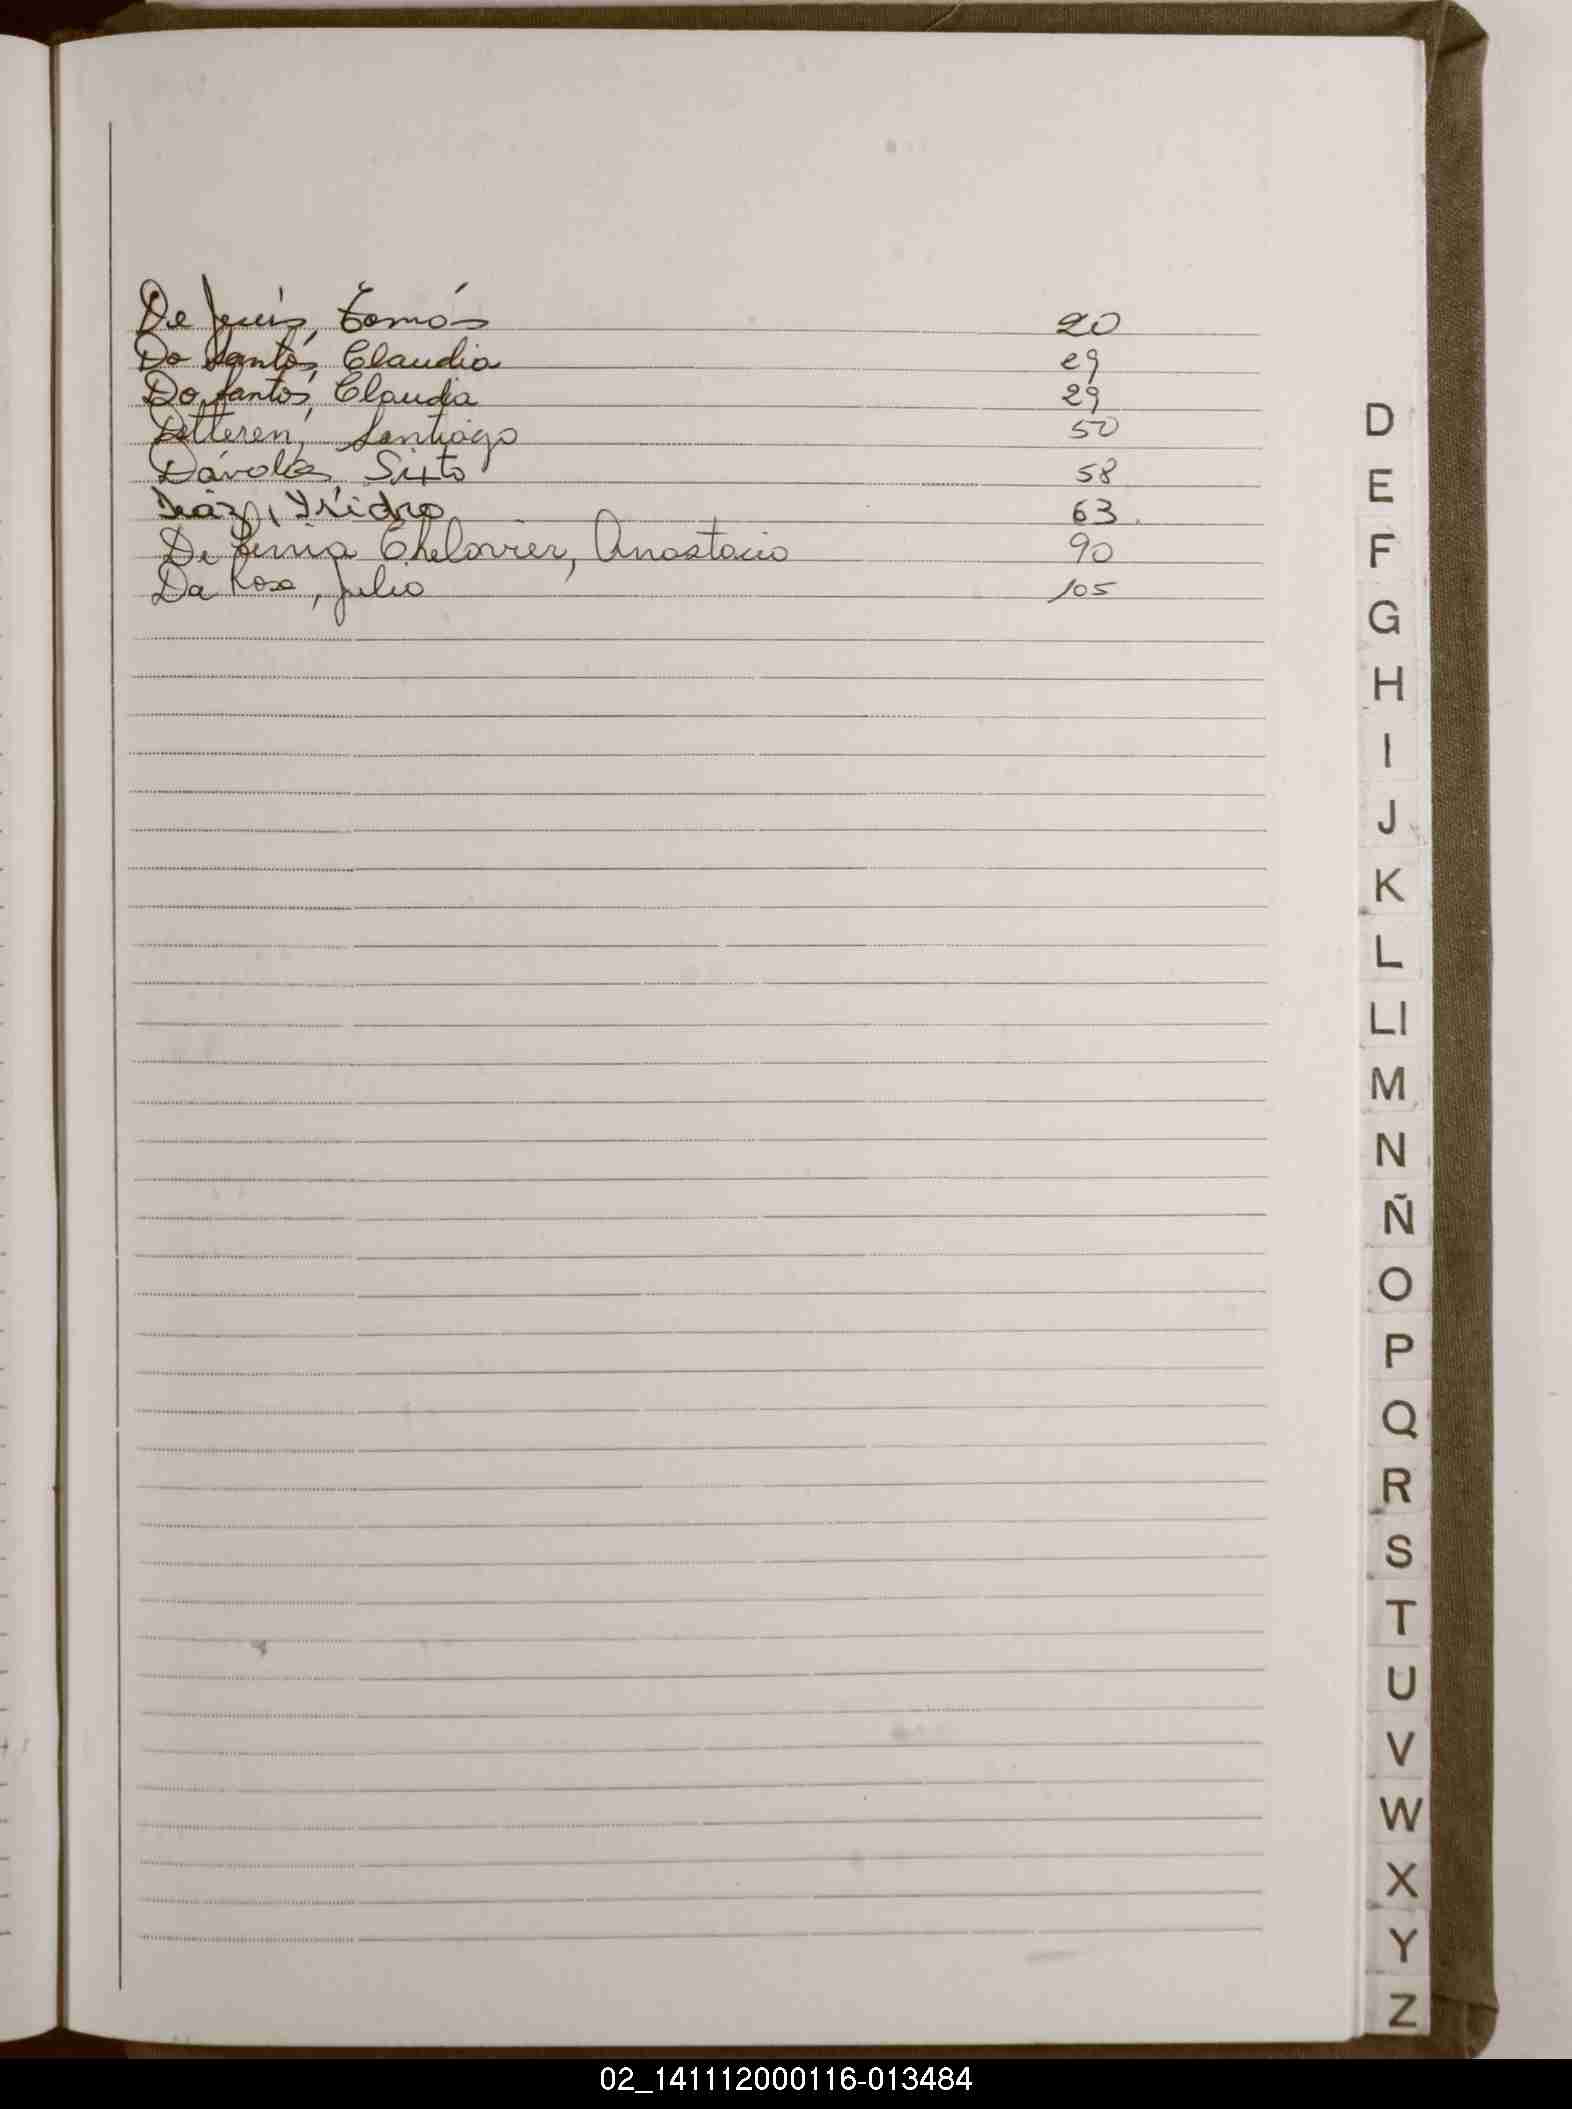 De Jesús, Tomás 20
Do Santos, Claudia 29
Do Santos, Claudia 29
Detteren, Santiago 50
Dávolos, Sixto 58
Díaz, Ysidro 63
De Chelovier, Anastacio 90
Da Rosa, Julio 105
D
E
F
G
H
I
J
K
L
Ll
M
N
Ñ
O
P
Q
R
S
T
U
V
W
X
Y
Z
02_141112000116-013484